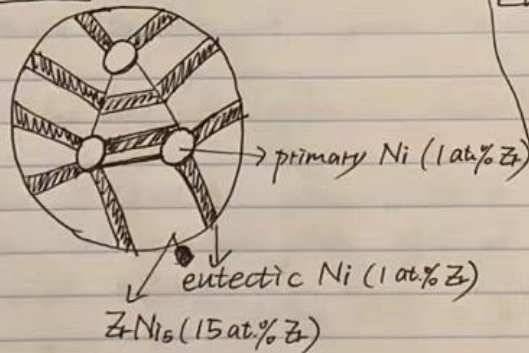 primary Ni (1 at.% Zr)
eutectic Ni (1 at.% Zr)
ZrNi5 (15 at.% Zr)